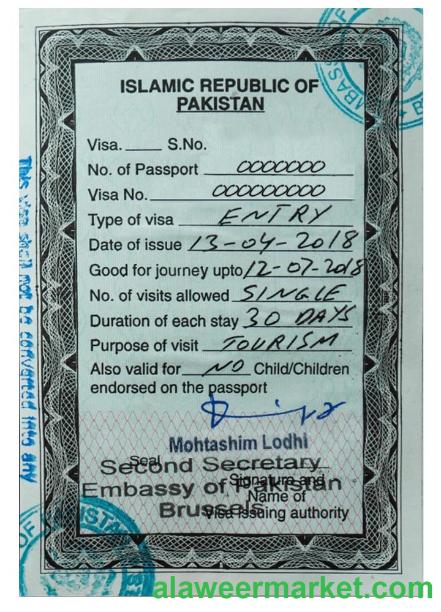 ISLAMIC REPUBLIC OF
PAKISTAN
Visa. ____ S.No.
No. of Passport 0000000
Visa No. 000000000
Type of visa ENTRY
Date of issue 13-04-2018
Good for journey upto 12-07-2018
No. of visits allowed SINGLE
Duration of each stay 30 DAYS
Purpose of visit TOURISM
Also valid for NO Child/Children
endorsed on the passport
Mohtashim Lodhi
Seal
Second Secretary
Signature and
Embassy of Pakistan
Name of
Brussels
Visa issuing authority
This visa shall not be converted into any
alaweermarket.com